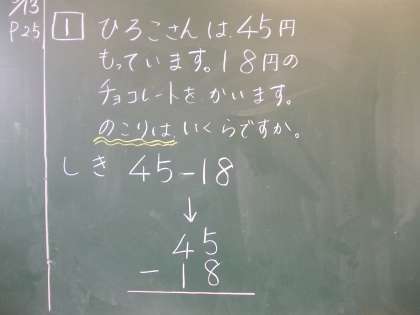 P25
1 ひろこさんは、45円
もっています。18円の
チョコレートをかいます。
のこりは、いくらですか。
しき 45-18
↓
45
-18